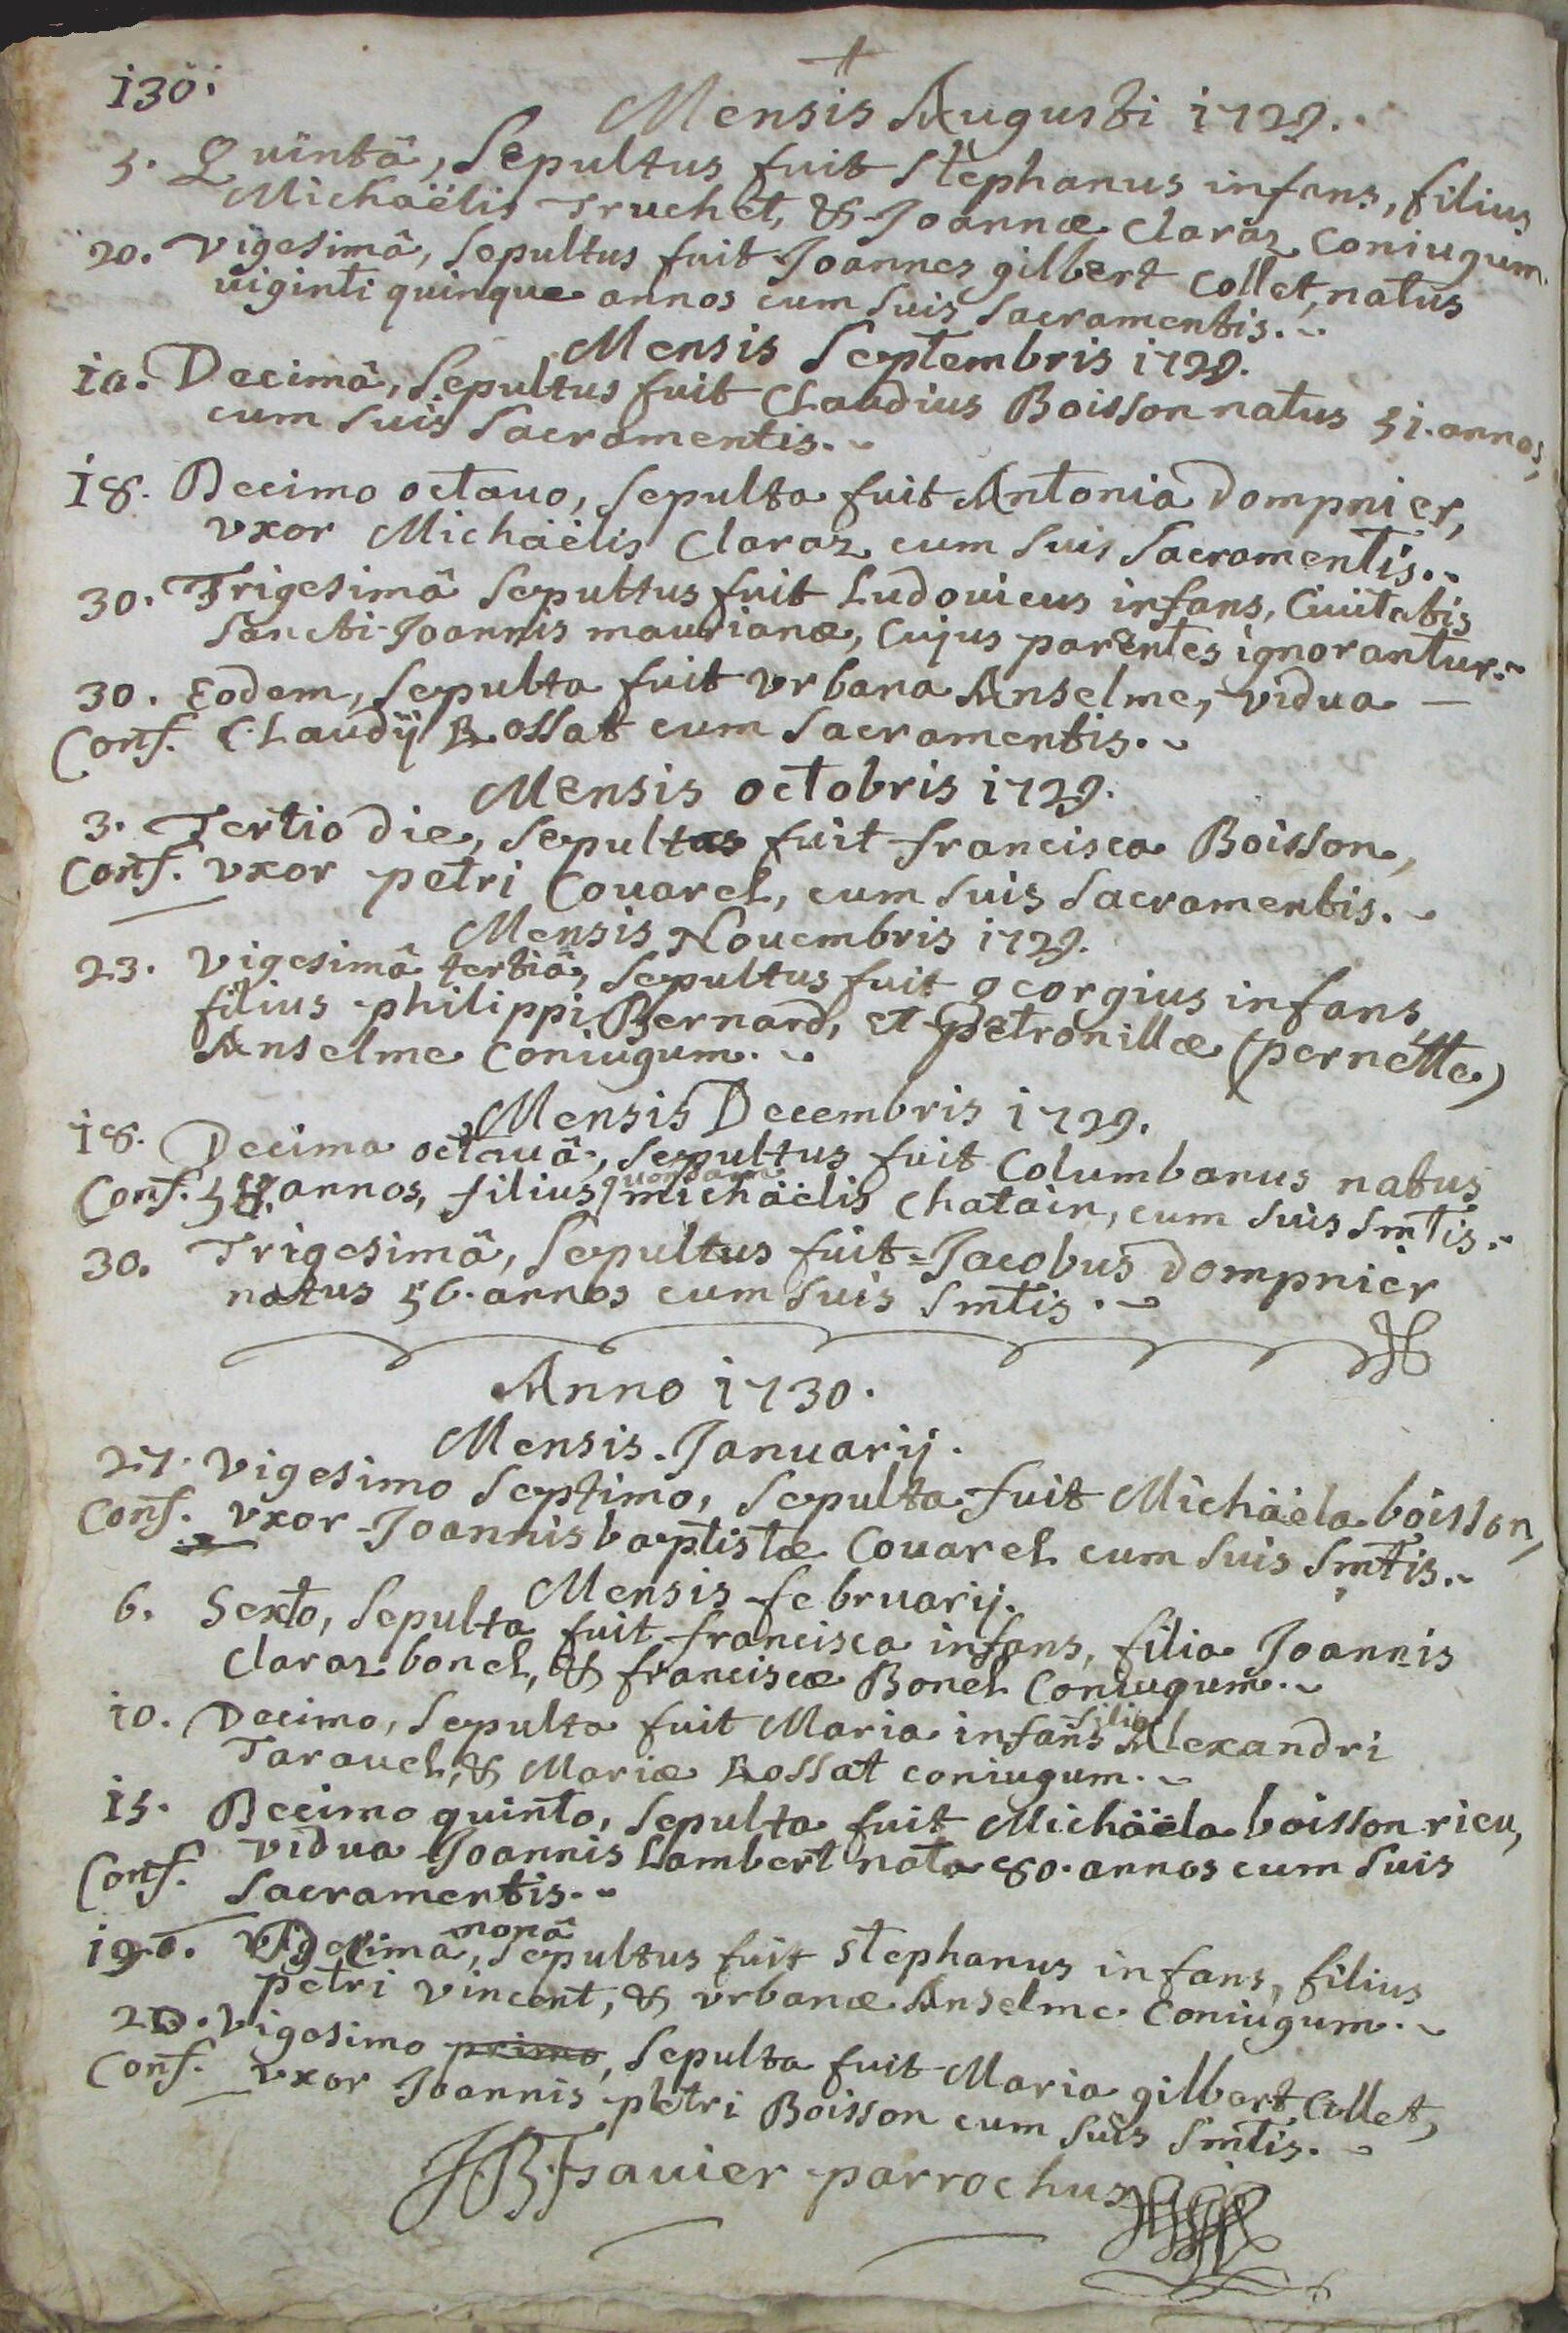 130.
Mensis Augusti 1729.
5. Quintâ, Sepultus fuit Stephanus infans, filius
Michaëlis Truchet, & Joannæ Claraz Coniugum.
20. Vigesimâ, Sepultus fuit Joannes gilbert Collet, natus
uiginti quinque annos cum suis sacramentis.
Mensis Septembris 1729.
10. Decimâ, Sepultus fuit Claudius Boisson natus 51. annos,
cum suis sacramentis.
18. Decimo octauo, Sepulta fuit Antonia Dompnier,
vxor Michaëlis Claraz cum suis sacramentis.
30. Trigesimâ Sepultus fuit Ludouicus infans, Ciuitatis
Sancti Joannis maurianæ, Cujus parentes ignorantur.
30. Eodem, Sepulta fuit vrbana Anselme, vidua —
Conf. Claudij Rossat cum sacramentis.
Mensis octobris 1729.
3. Tertio die, Sepulta fuit francisca Boisson,
Conf. vxor petri Couarel, cum suis sacramentis.
Mensis Nouembris 1729.
23. Vigesimâ tertiâ, Sepultus fuit georgius infans,
filius philippi Bernard, et Petronillæ (pernette)
Anselme Coniugum.
Mensis Decembris 1729.
18. Decima octauâ, Sepultus fuit Columbanus natus
Conf. annos, filius quondam michaëlis Chatain, cum suis smtis.
30. Trigesimâ, Sepultus fuit Jacobus Dompnier
natus 56. annos cum suis smtis.
Anno 1730.
Mensis Januarij.
27. Vigesimo Septimo, Sepulta fuit Michaëla boisson,
Conf. vxor Joannis baptistæ Couarel cum suis smtis.
Mensis februarij.
6. Sexto, Sepulta fuit francisca infans, filia Joannis
Claraz bonel, & franciscæ Bonel Coniugum.
10. Decimo, Sepulta fuit Maria infans filia Alexandri
Tarauel, & Mariæ Rossat coniugum.
15. Decimo quinto, Sepulta fuit Michaëla boisson rieu,
vidua Joannis Lambert nata 80. annos cum suis
Conf. sacramentis.
19. Decimâ nonâ, Sepultus fuit Stephanus infans, filius
petri Vincent, & vrbanæ Anselme Coniugum.
20. Vigesimo primo, Sepulta fuit Maria gilbert Collet,
Conf. vxor Joannis petri Boisson cum suis smtis.
parrochus